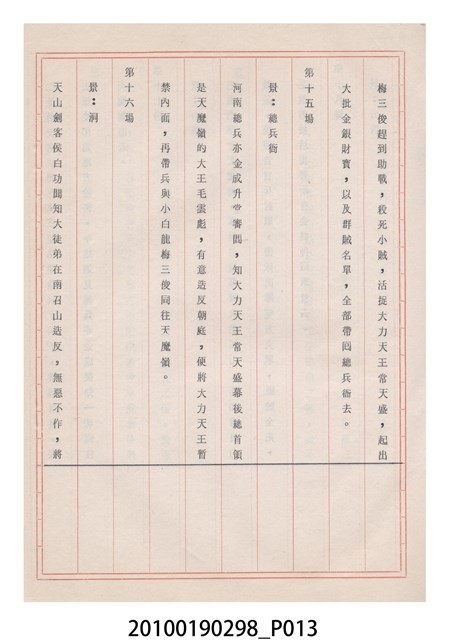 梅三俊趕到助戰，殺死小賊，活捉大力天王常天盛，起出
大批金銀財寶，以及群賊名單，全部帶囘總兵衙去。
第十五場
景：總兵衙
河南總兵亦金成升堂審問，知大力天王常天盛幕後總首領
是天魔嶺的大王毛雲彪，有意造反朝庭，便將大力天王暫
禁內面，再帶兵與小白龍梅三俊同往天魔嶺。
第十六場
景：洞
天山劍客侯白功聞知大徒弟在南召山造反，無惡不作，將
20100190298_P013